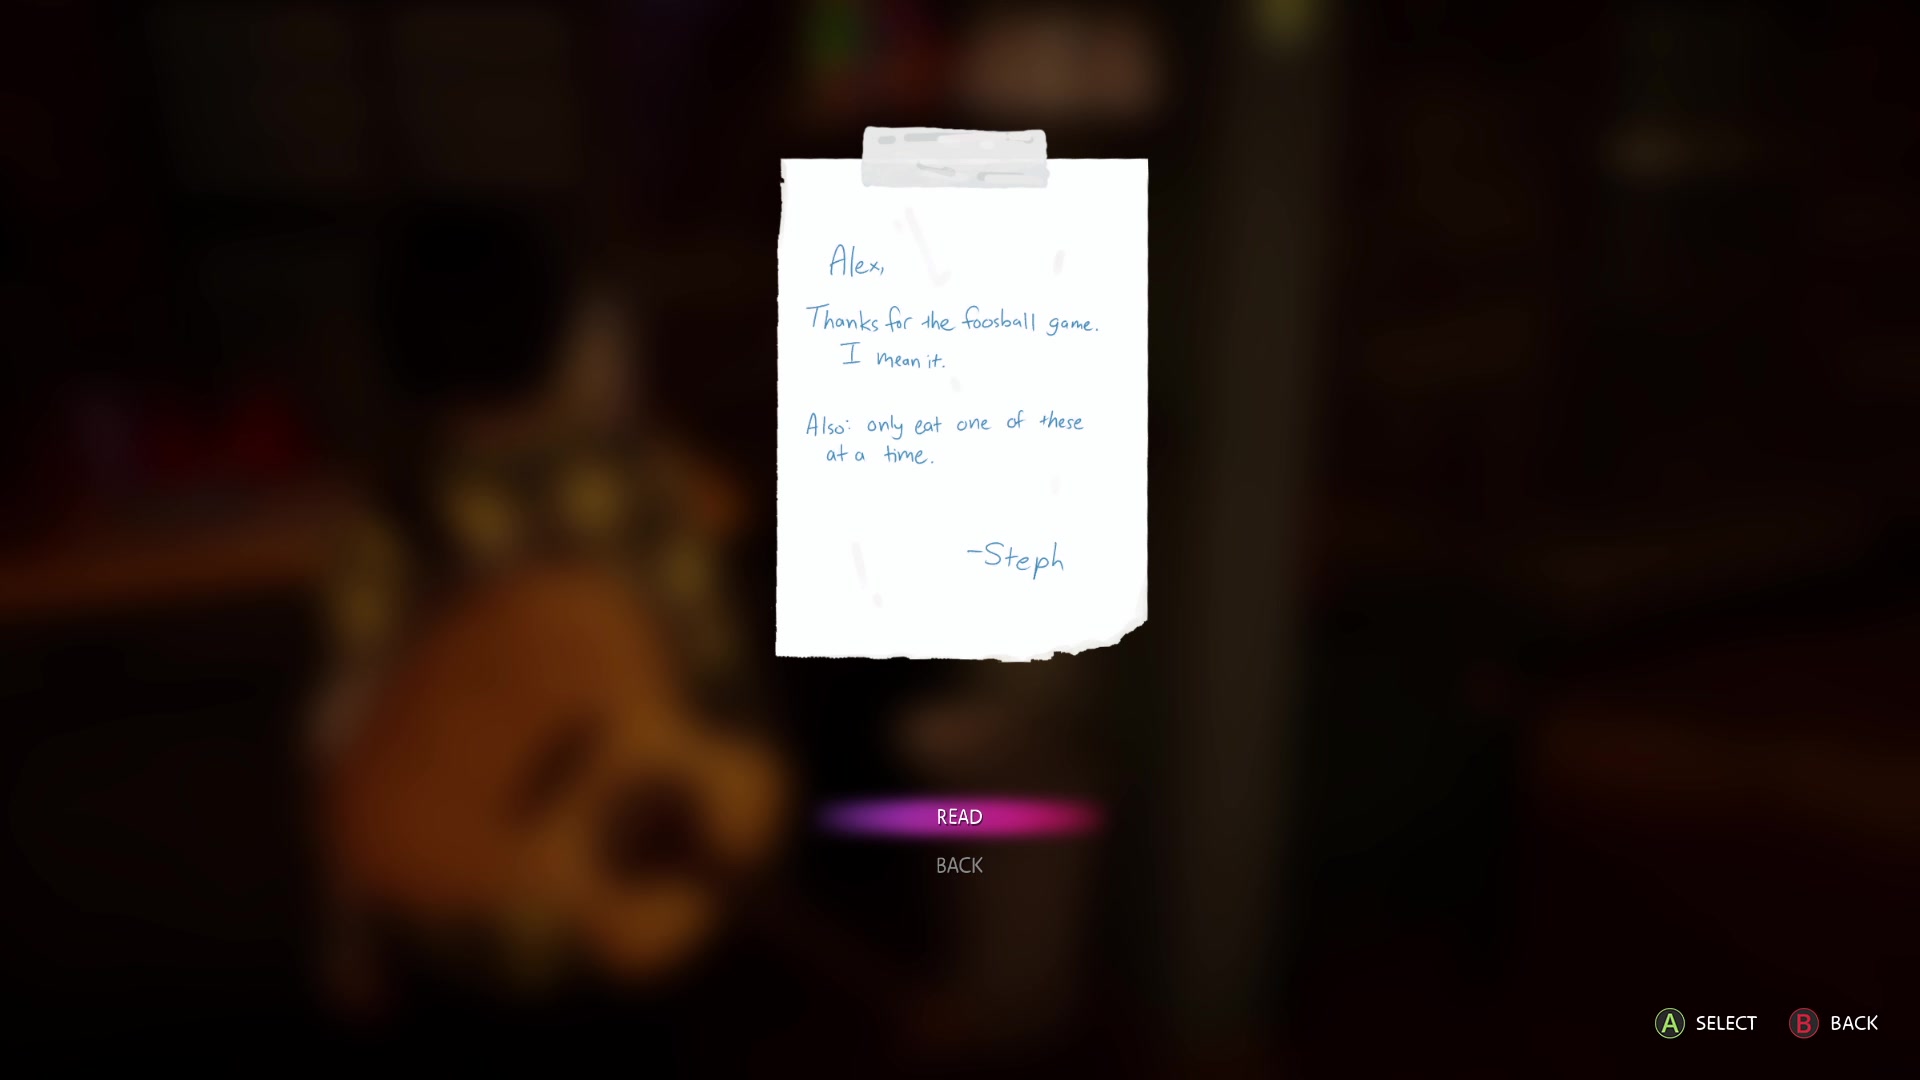 Alex,
Thanks for the foosball game.
I mean it.
Also: only eat one of these
at a time.
-Steph
READ
BACK
A SELECT B BACK